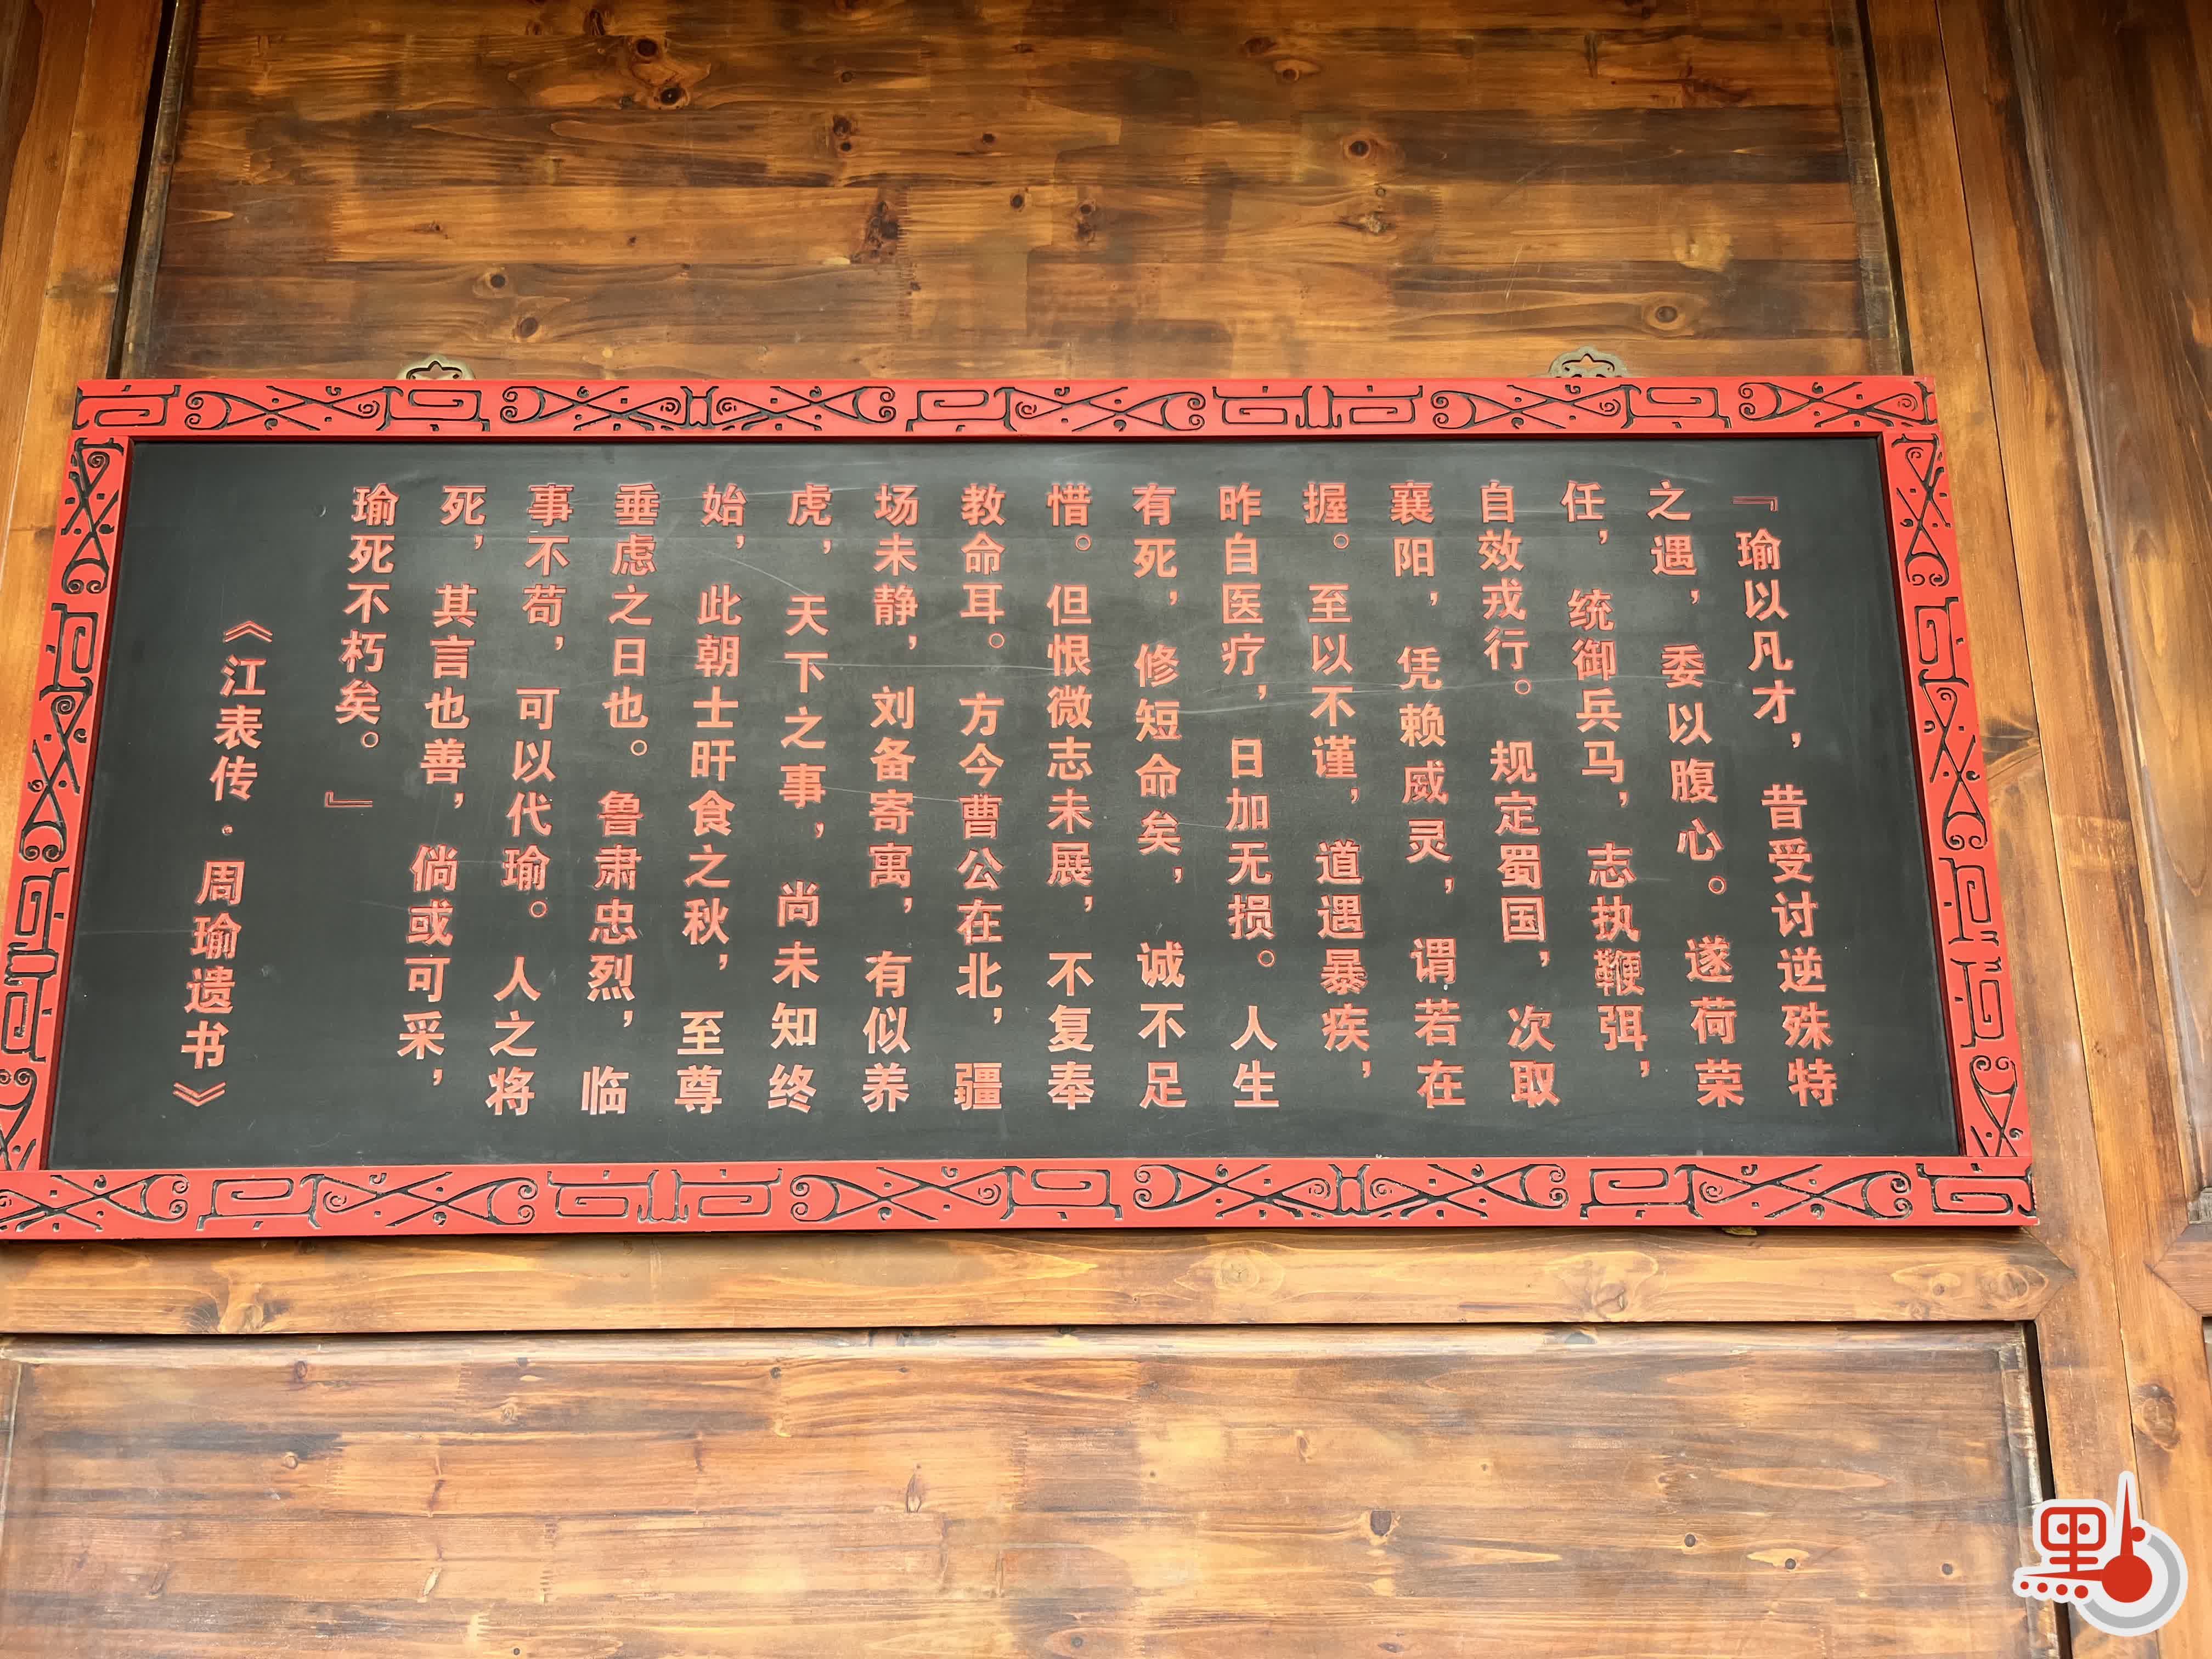 『瑜以凡才，昔受讨逆殊特
之遇，委以腹心。遂荷荣
任，统御兵马，志执鞭弭，
自效戎行。规定蜀国，次取
襄阳，凭赖威灵，谓若在
握。至以不谨，道遇暴疾，
昨自医疗，日加无损。人生
有死，修短命矣，诚不足
惜。但恨微志未展，不复奉
教命耳。方今曹公在北，疆
场未静，刘备寄寓，有似养
虎，天下之事，尚未知终
始，此朝士旰食之秋，至尊
垂虑之日也。鲁肃忠烈，临
事不苟，可以代瑜。人之将
死，其言也善，倘或可采，
瑜死不朽矣。』
《江表传·周瑜遗书》
點